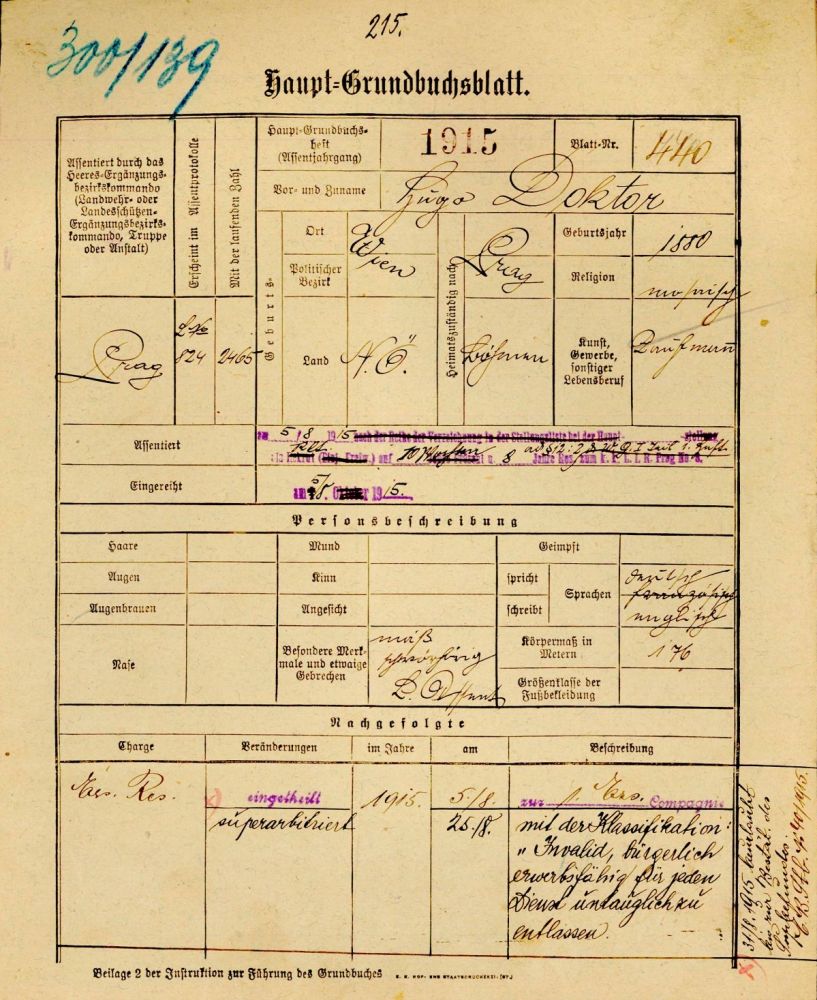 215.
300/139
Haupt-Grundbuchsblatt.
Assentiert durch das
Heeres-Ergänzungs-
bezirkskommando
(Landwehr- oder
Landesschützen-
Ergänzungsbezirks-
kommando, Truppe
oder Anstalt)
Erscheint im Assentprotokolle
Mit der laufenden Zahl
Haupt-Grundbuchs-
heft
(Assentjahrgang)
1915
Blatt-Nr.
440
Vor- und Zuname
Hugo Doktor
Geburts-
Ort
Politischer
Bezirk
Wien
Land
N.Ö.
Heimatszuständig nach
Prag
Böhmen
Geburtsjahr
1880
Religion
mosaisch
Kunst,
Gewerbe,
sonstiger
Lebensberuf
Kaufmann
Prag
824
2465
Assentiert
am 5/8 1915 nach der Reihe der Verzeichnung in der Stellungsliste bei der Haupt-stellung
auf u. 8 Jahre Res. zum k. k. L. I. R. Prag No 8.
Eingereiht
am 5/8. Oktober 1915.
Personsbeschreibung
Haare
Mund
Geimpft
Augen
Kinn
spricht
schreibt
Sprachen
deutsch
französisch
englisch
Augenbrauen
Angesicht
Nase
Besondere Merk-
male und etwaige
Gebrechen
schwerhörig
L. Assent
Körpermaß in
Metern
176
Größenklasse der
Fußbekleidung
Nachgefolgte
Charge
Veränderungen
im Jahre
am
Beschreibung
Ers. Res.
eingetheilt
1915.
5/8.
zur 1. Ers. Compagnie
superarbitriert
25./8.
mit der Klassifikation:
„Invalid, bürgerlich
erwerbsfähig für jeden
Dienst untauglich zu
entlassen.
31/8. 1915 beurlaubt
bis zur Bestät. des
Beilage 2 der Instruktion zur Führung des Grundbuches
K. K. HOF- UND STAATSDRUCKEREI. (ST.)